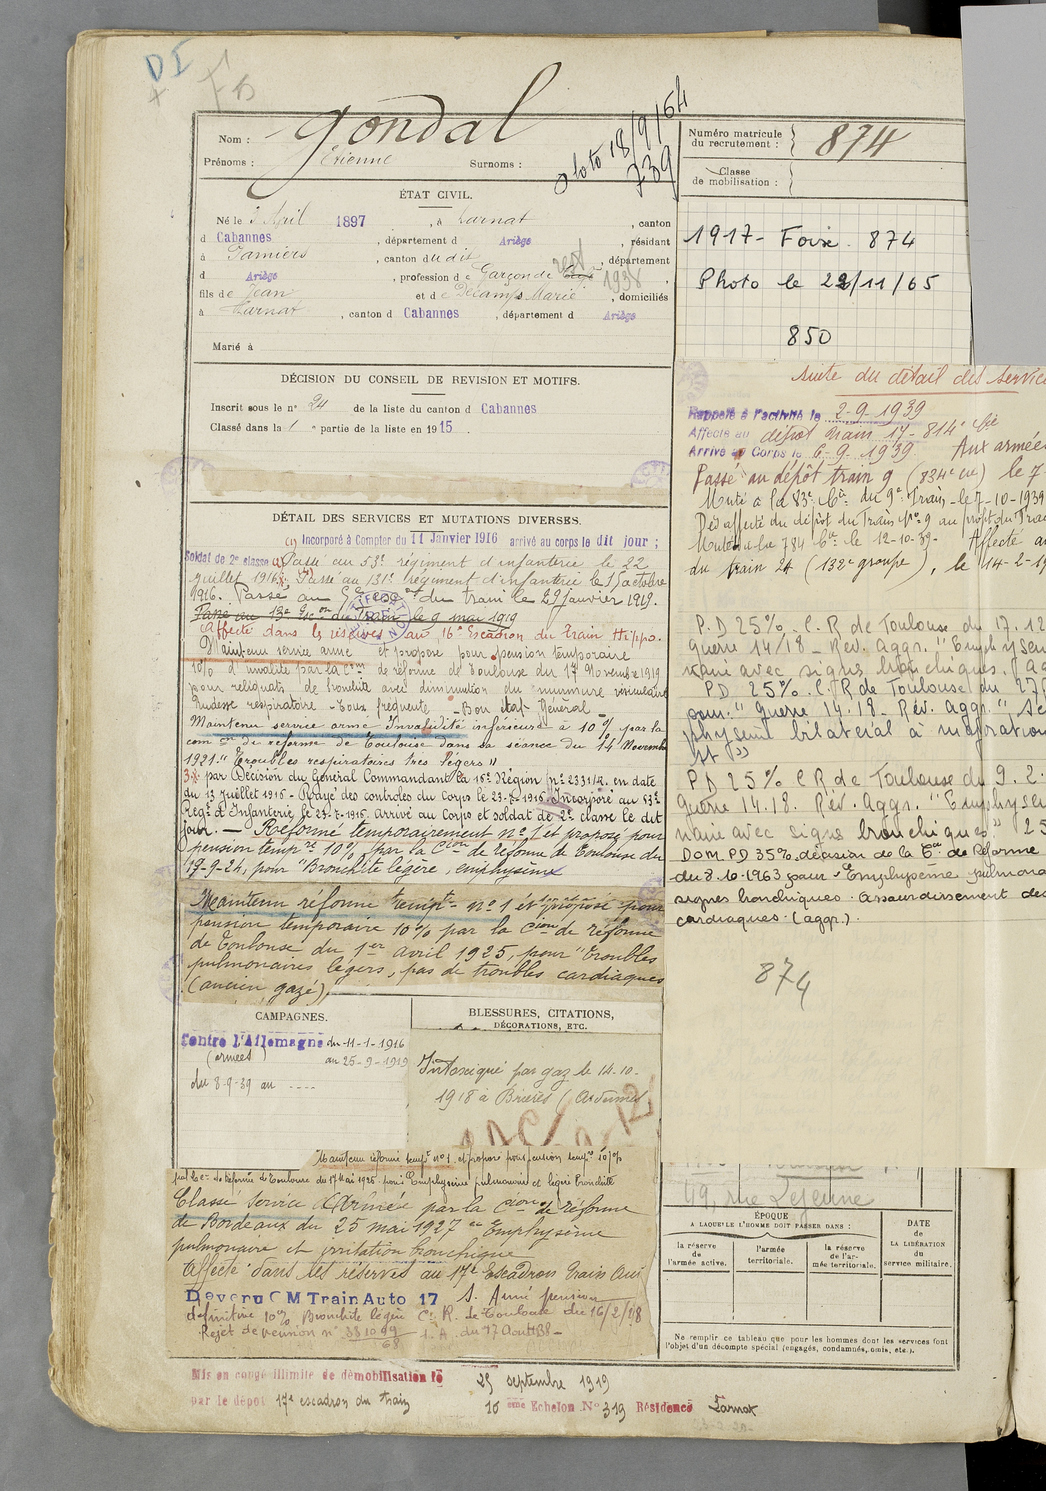 DI
Nom : Gondal
Prénoms : Etienne Surnoms :
Photo 18/9/64
739
Numéro matricule
du recrutement : 874
Classe
de mobilisation :
ÉTAT CIVIL.
Né le 3 Avril 1897, à Larnat, canton
d Cabannes, département d Ariège, résidant
à Pamiers, canton dudit, département
d Ariège, profession de Garçon de Café
rest 1938
fils de Jean et de Decamps Marie, domiciliés
à Larnat, canton d Cabannes, département d Ariège
Marié à
1917 - Foix. 874
Photo le 22/11/65
850
DÉCISION DU CONSEIL DE REVISION ET MOTIFS.
Inscrit sous le n° 24 de la liste du canton d Cabannes
Classé dans la 1 e partie de la liste en 1915.
DÉTAIL DES SERVICES ET MUTATIONS DIVERSES.
(1) Incorporé à Compter du 11 Janvier 1916 arrivé au corps le dit jour ;
Soldat de 2e classe Passé au 53e régiment d'infanterie le 22
juillet 1916. Passé au 131e régiment d'infanterie le 15 octobre
1916. Passé au du train le 29 Janvier 1919.
Passé au 13e Escon du Train le 9 mai 1919
Affecté dans les réserves au 16e Escadron du Train Hippo.
Maintenu service armé et proposé pour pension temporaire
10% d'invalité par la Con de réforme de Toulouse du 17 Novembre 1919
pour reliquats de bronchite avec diminution du murmure vésiculaire
rudesse respiratoire - Toux fréquente - Bon état Général -
Maintenu service armé - Invalidité inférieure à 10% par la
comon de réforme de Toulouse dans sa séance du 14 Novembre
1921 "Troubles respiratoires très légers"
par Décision du Général Commandant la 16e Région n° 2331/2. en date
du 13 Juillet 1916 - Rayé des contrôles du Corps le 23-7-1916. Incorporé au 53e
Régt d'Infanterie le 23-7-1916. arrivé au Corps et soldat de 2e classe le dit
jour. — Réformé temporairement n° 1 et proposé pour
pension tempre 10% par la Cion de réforme de Toulouse du
17-9-24, pour "Bronchite légère, emphysème
Maintenu réformé tempre n° 1 et proposé pour
pension temporaire 10% par la Cion de réforme
de Toulouse du 1er avril 1925, pour "Troubles
pulmonaires légers, pas de troubles cardiaques
(ancien gazé)
CAMPAGNES.
Contre l'Allemagne du 11-1-1916
(armées) au 25-9-1919
du 8-9-39 au ....
BLESSURES, CITATIONS,
DÉCORATIONS, ETC.
Intoxiqué par gaz le 14-10-
1918 à Brières (Ardennes
Maintenu réformé tempre n° 1, et proposé pour pension tempre 10%
par la Con de Réforme de Toulouse du 17 Mai 1926 pour Emphysème pulmonaire et légère bronchite
Classé Service Armée par la Cion de réforme
de Bordeaux du 25 mai 1927 Emphysème
pulmonaire et irritation bronchique
Affecté dans les réserves au 17e Escadron Train Auto
Devenu CM Train Auto 17 S. Armé pension
définitive 10% Bronchite légère C. R. de Toulouse du 16/2/28
Rejet de pension n° 331099 du 17 Août 38 -
68
Mis en congé illimité de démobilisation le 25 septembre 1919
par le dépôt 17e escadron du train 10 ème Echelon N° 319 Résidence Larnat
Suite du détail des services
Rappelé à l'activité le 2-9-1939
Affecté au dépôt train 17 - 814e Cie
Arrivé au Corps le 6-9-1939 Aux armées
Passé au dépôt train 9 (834e cie) le 7-
Muté à la 83e Cie du 9e Train - le 7-10-1939
Désaffecté du dépôt du Train N° 9 au profit du Train
Muté à la 784 Cie le 12-10-39 - Affecté au
du train 24 (132e groupe), le 14-2-19
P.D 25%. C.R de Toulouse du 17.12
Guerre 14/18 - Rev. Aggr. "Emphysem
naire avec signes bronchiques. (ag
PD 25%. C.R de Toulouse du 27
pour. "Guerre 14.18 - Rév. Aggr."
physeme bilatéral à
PD 25% CR de Toulouse du 9.2.
Guerre 14.18. Rév. Aggr. "Emphysem
naire avec signes bronchiques." 25
DOM. PD 35% décision de la Con de Réforme
du 8.10.1963 pour "Emphysème pulmona
signes bronchiques. Assourdissement des
cardiaques. (aggr.)
874
49, rue Lejeune
ÉPOQUE
A LAQUELLE L'HOMME DOIT PASSER DANS :
la réserve
de
l'armée active.
l'armée
territoriale.
la réserve
de l'ar-
mée territoriale.
DATE
de
LA LIBÉRATION
du
service militaire.
Ne remplir ce tableau que pour les hommes dont les services font
l'objet d'un décompte spécial (engagés, condamnés, omis, etc.).